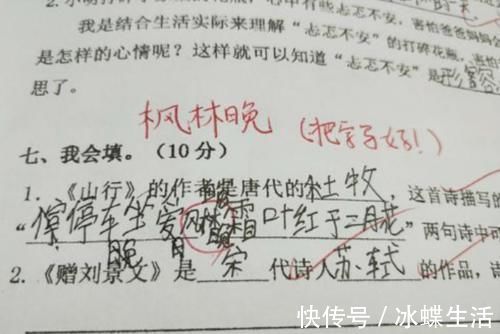 我是结合生活实际来理解“忐忑不安”的打碎花瓶,害怕爸爸妈妈
是怎样的心情呢?这样就可以知道“忐忑不安”是形容
思了。
枫林晚(把字写好!)
七、我会填。(10分)
1.《山行》的作者是唐代的杜牧,这首诗描写的
“停停车坐爱 霜叶红于二月花”两句诗中可
晚
2.《赠刘景文》是宋代诗人苏轼的作品,诗
快传号/冰蝶生活